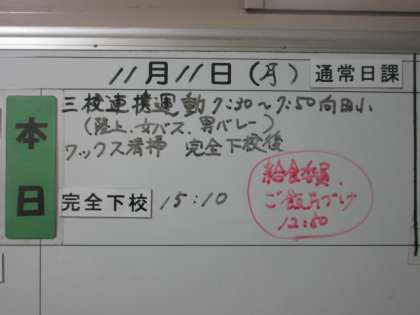 11月11日(月) 通常日課
本日
三校連携運動 7:30〜7:50 向田小
(陸上、女バス、男バレー)
ワックス清掃 完全下校後
完全下校 15:10
給食委員、
ご飯片づけ
12:50